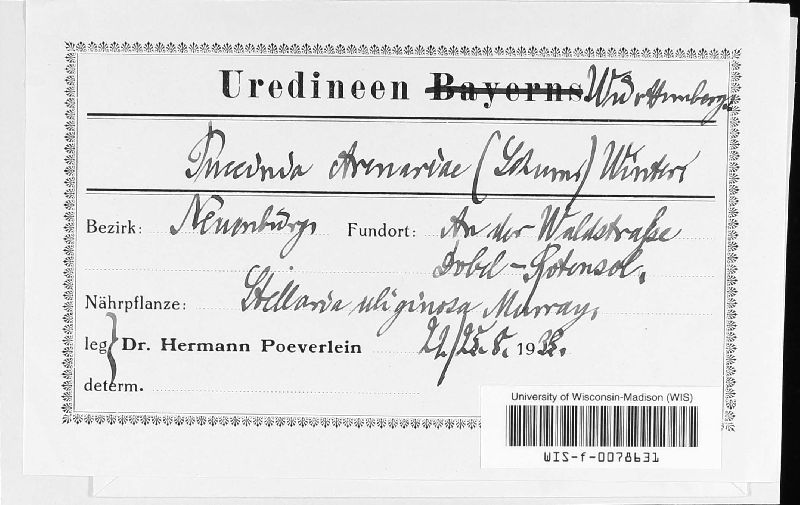 Uredineen Bayerns Württembergs
Puccinia Arenariae (Schum.) Winter.
Bezirk: Neuenbürg. Fundort: An der Waldstraße
Dobel - Rotensol.
Nährpflanze: Stellaria uliginosa Murray.
leg. Dr. Hermann Poeverlein 22./25.8. 19
determ.
University of Wisconsin-Madison (WIS)
WIS-f-0078631